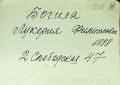 Богила
Лукерия Филипповна
1888
2 Слободская 47